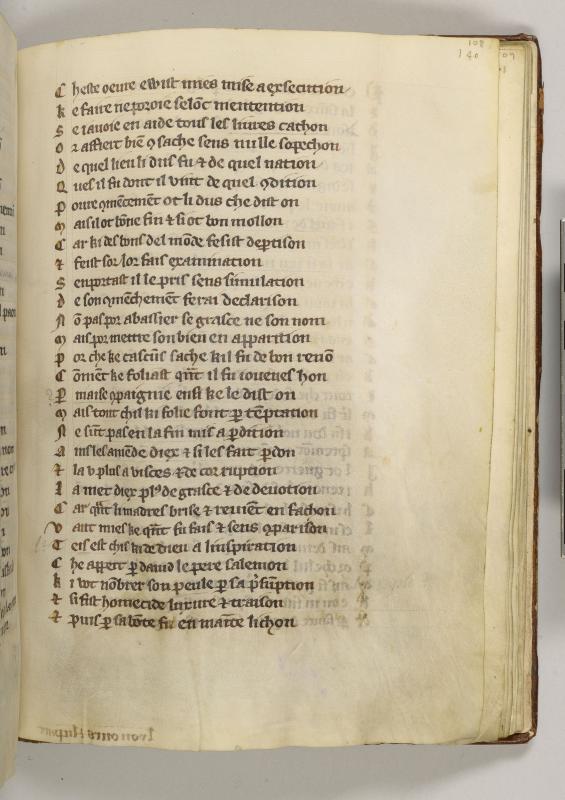 108
140
C heste oeure ewist mes mise a exsecution
k e faire ne poroie selōc mentention
S e iauoie en aide tous les liures cathon
O r affiert biē ꝯ sache sens nulle sopechon
d e quel lieu li dus fu ⁊ de quel nation
Q ues il fu dont il vint de quel ꝯdition
P oure ꝯmencement ot li dus che dist on
M ais il ot bōne fin ⁊ si ot bon mollon
C ar ki des bons del mōde fesist deptison
⁊ feist sor lor fais examination
S enportast il le pris sens simulation
d e son ꝯmēchemēt ferai declarison
N ō pas por abassier se grasce ne son nom
M ais por mettre son bien en apparition
P or che ke cascūs sache kil fu de bon renō
C ōmēt ke foliast qūt il fu ioueues hon
P maise ꝯpaignie ensi ke le dist on
M ais tout chil ki folie font ꝑ tēptation
N e sūt pas en la fin mis a ꝑdition
A ins les amēde diex ⁊ si les fait ꝑdon
⁊ la v plus a visces ⁊ de corruption
I a met diex plꝰ de grasce ⁊ de deuotion
C ar qūt li madres brise ⁊ reuiēt en fachon
V aut mies ke qūt fu fais ⁊ sens ꝯparison
T eis est chis ki de dieu a linspiration
C he appert ꝑ dauid le pere salemon
k i vot nōbrer son peule ꝑ sa p̄sūption
⁊ si fist homecide luxure ⁊ traison
⁊ puis ꝑ sa bōte fu en mainte lichon